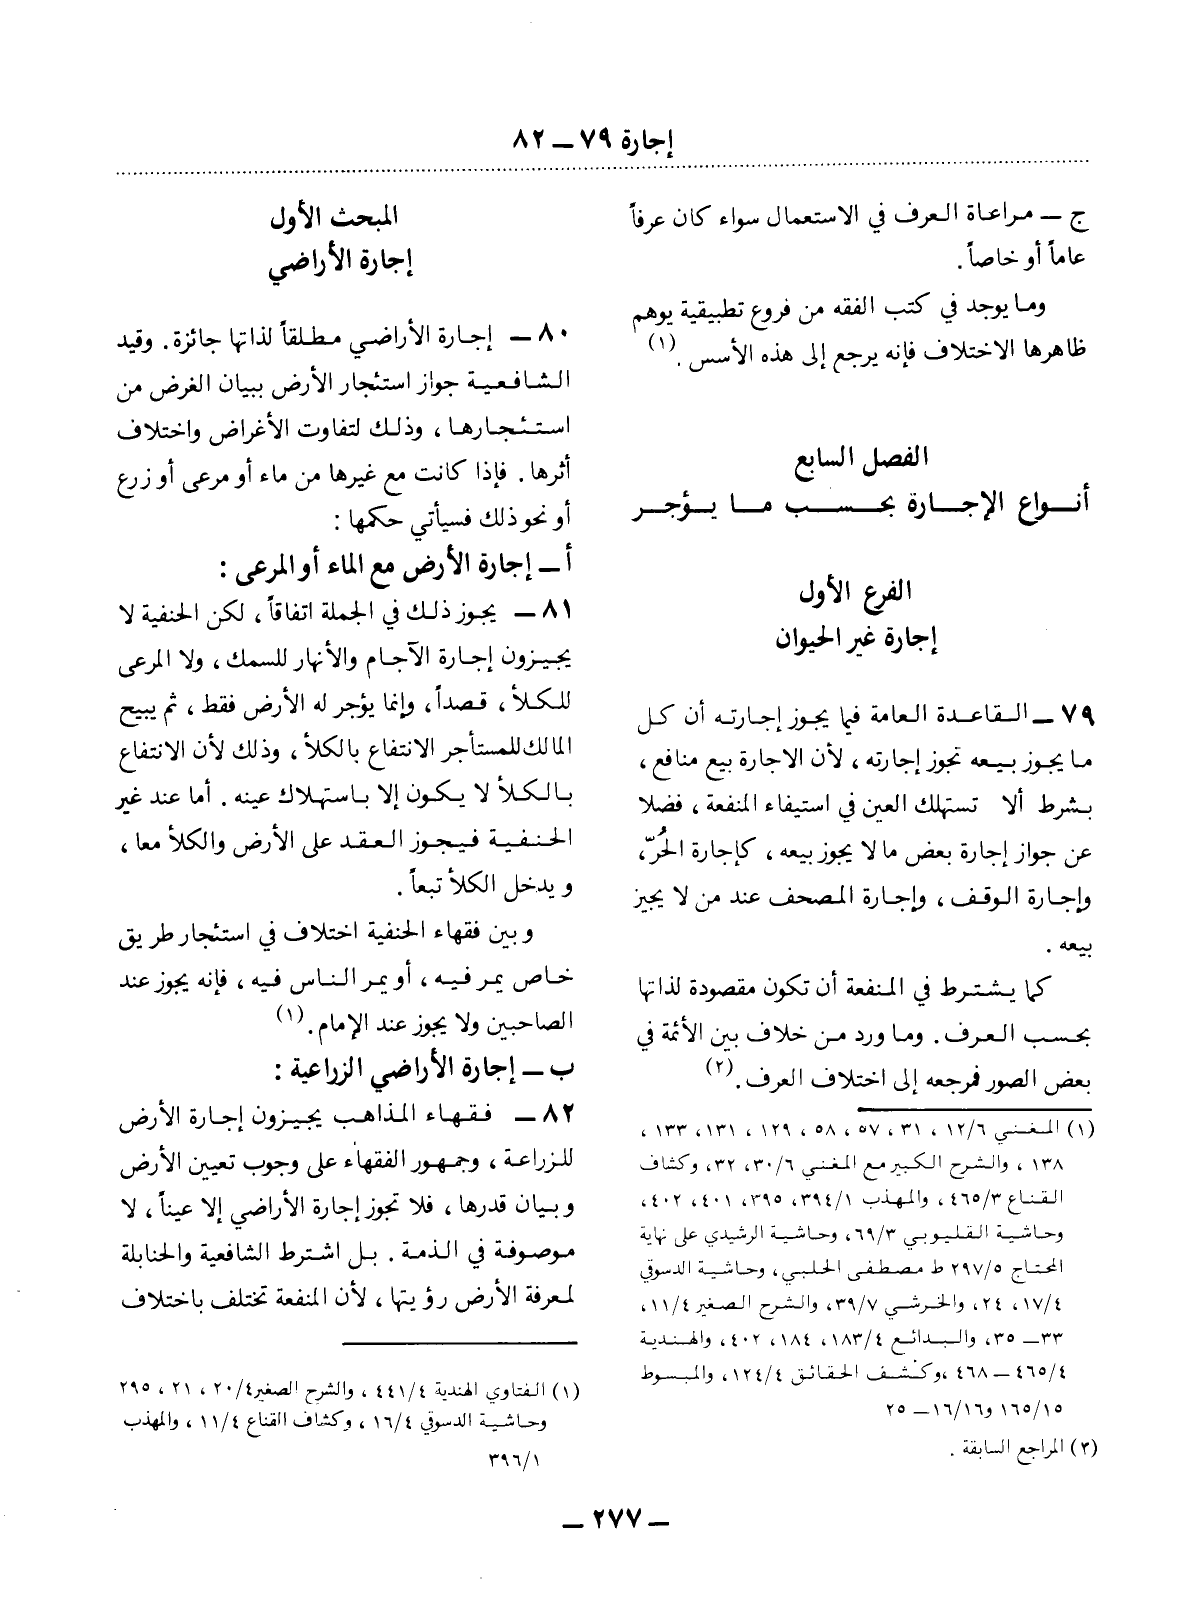 إجارة ٧٩ — ٨٢
ج — مراعاة العرف في الاستعمال سواء كان عرفاً
عاماً أو خاصاً .
وما يوجد في كتب الفقه من فروع تطبيقية يوهم
ظاهرها الاختلاف فإنه يرجع إلى هذه الأسس . (١)
الفصل السابع
أنواع الإجارة بحسب ما يؤجر
الفرع الأول
إجارة غير الحيوان
٧٩ — القاعدة العامة فيما يجوز إجارته أن كل
ما يجوز بيعه تجوز إجارته ، لأن الاجارة بيع منافع ،
بشرط ألا تستهلك العين في استيفاء المنفعة ، فضلا
عن جواز إجارة بعض ما لا يجوز بيعه ، كإجارة الحُرّ،
وإجارة الوقف ، وإجارة المصحف عند من لا يجيز
بيعه .
كما يشترط في المنفعة أن تكون مقصودة لذاتها
بحسب العرف . وما ورد من خلاف بين الأئمة في
بعض الصور فمرجعه إلى اختلاف العرف . (٢)
(١) المغني ١٢/٦ ، ٣١ ، ٥٧ ، ٥٨ ، ١٢٩ ، ١٣١ ، ١٣٣ ،
١٣٨ ، والشرح الكبير مع المغني ٣٠/٦، ٣٢، وكشاف
القناع ٤٦٥/٣ ، والمهذب ٣٩٤/١، ٣٩٥، ٤٠١، ٤٠٢،
وحاشية القليوبي ٦٩/٣، وحاشية الرشيدي على نهاية
المحتاج ٢٩٧/٥ ط مصطفى الحلبي، وحاشية الدسوقي
١٧/٤، ٢٤، والخرشي ٣٩/٧، والشرح الصغير ١١/٤،
٣٣— ٣٥، والبدائع ١٨٣/٤، ١٨٤، ٤٠٢، والهندية
٤٦٥/٤ — ٤٦٨ ،وكشف الحقائق ١٢٤/٤، والمبسوط
١٦٥/١٥ و١٦/١٦— ٢٥
(٢) المراجع السابقة .
المبحث الأول
إجارة الأراضي
٨٠ — إجارة الأراضي مطلقاً لذاتها جائزة . وقيد
الشافعية جواز استئجار الأرض ببيان الغرض من
استئجارها ، وذلك لتفاوت الأغراض واختلاف
أثرها . فإذا كانت مع غيرها من ماء أو مرعى أو زرع
أو نحو ذلك فسيأتي حكمها :
أ — إجارة الأرض مع الماء أو المرعى :
٨١ — يجوز ذلك في الجملة اتفاقاً ، لكن الحنفية لا
يجيزون إجارة الآجام والأنهار للسمك ، ولا المرعى
للكلأ ، قصداً، وإنما يؤجر له الأرض فقط ، ثم يبيح
المالك للمستأجر الانتفاع بالكلأ ، وذلك لأن الانتفاع
بالكلأ لا يكون إلا باستهلاك عينه . أما عند غير
الحنفية فيجوز العقد على الأرض والكلأ معا ،
ويدخل الكلأ تبعاً .
وبين فقهاء الحنفية اختلاف في استئجار طريق
خاص يمر فيه ، أو يمر الناس فيه ، فإنه يجوز عند
الصاحبين ولا يجوز عند الإمام . (١)
ب — إجارة الأراضي الزراعية :
٨٢ — فقهاء المذاهب يجيزون إجارة الأرض
للزراعة ، وجمهور الفقهاء على وجوب تعيين الأرض
وبيان قدرها ، فلا تجوز إجارة الأراضي إلا عيناً ، لا
موصوفة في الذمة . بل اشترط الشافعية والحنابلة
لمعرفة الأرض رؤيتها ، لأن المنفعة تختلف باختلاف
(١) الفتاوي الهندية ٤٤١/٤ ، والشرح الصغير٢٠/٤ ، ٢١ ، ٢٩٥
وحاشية الدسوقي ١٦/٤ ، وكشاف القناع ١١/٤ ، والمهذب
٣٩٦/١
— ٢٧٧ —